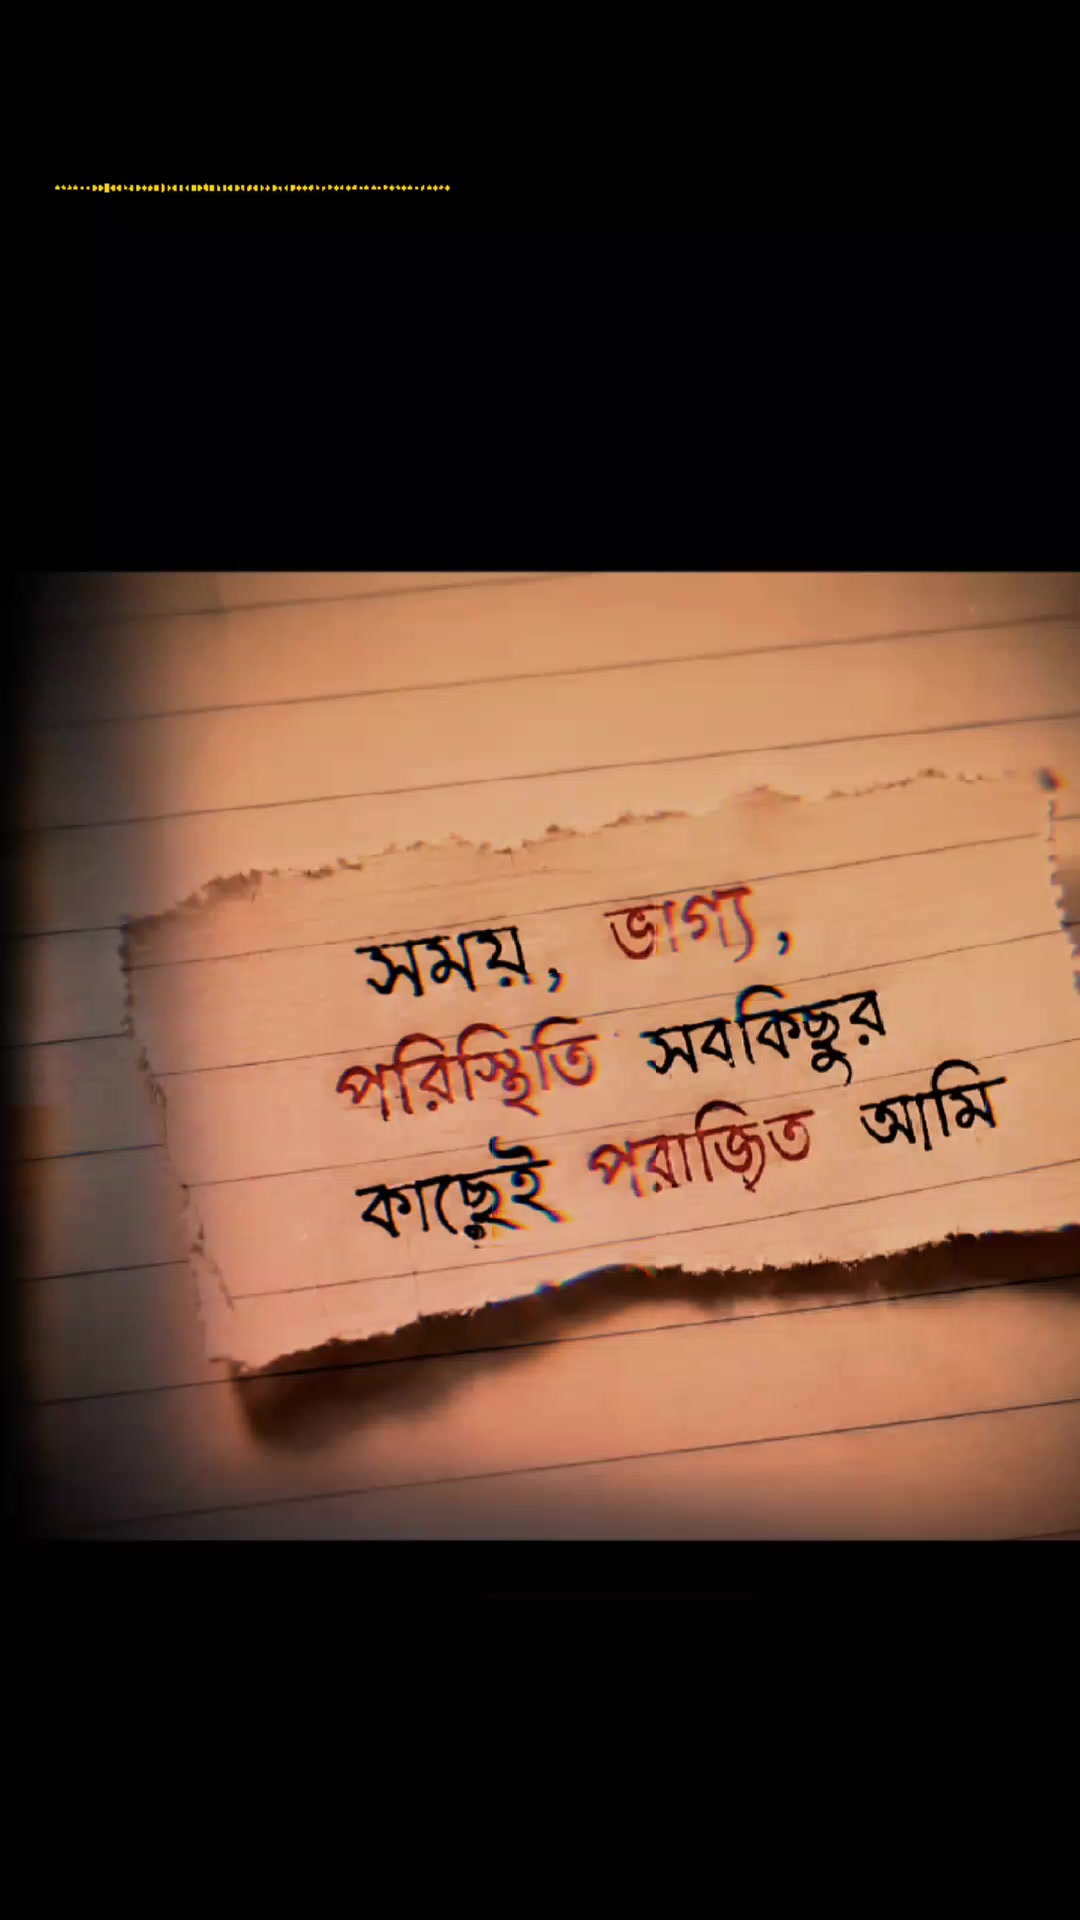 সময়, ভাগ্য,
পরিস্থিতি সবকিছুর
কাছেই পরাজিত আমি